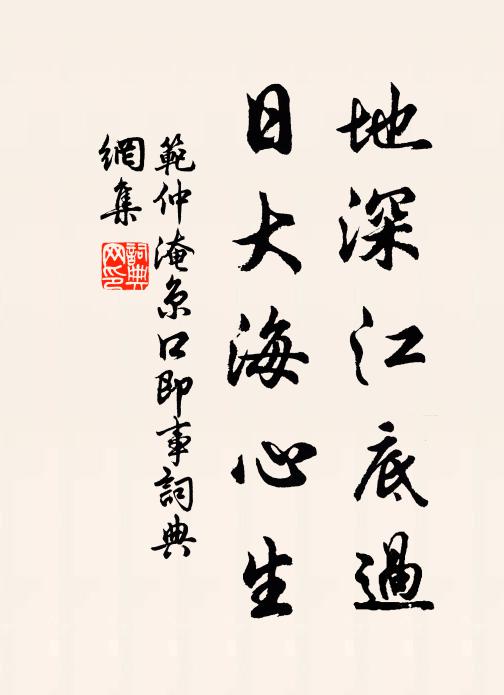 地深江底過
日大海心生
範仲淹京口即事詞典
網集
詞典
網印